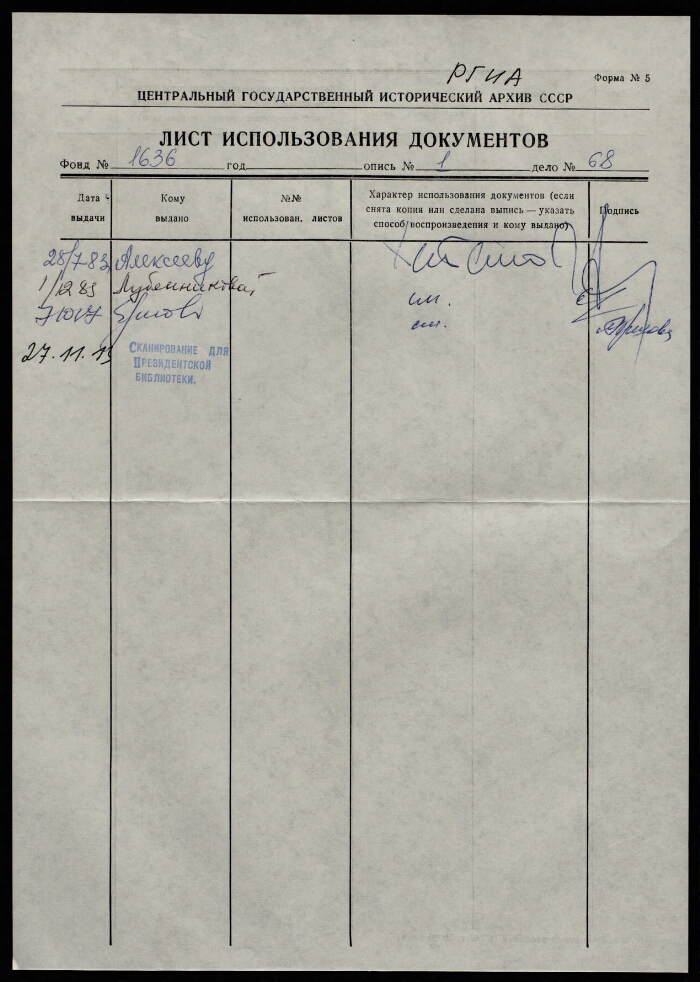 РГИА
Форма № 5
ЦЕНТРАЛЬНЫЙ ГОСУДАРСТВЕННЫЙ ИСТОРИЧЕСКИЙ АРХИВ СССР
ЛИСТ ИСПОЛЬЗОВАНИЯ ДОКУМЕНТОВ
Фонд № 1636 год опись № 1 дело № 68
Дата выдачи
Кому выдано
№№ использован. листов
Характер использования документов (если
снята копия или сделана выпись — указать
способ воспроизведения и кому выдано)
Подпись
28/7-83 Алексееву
1/12 83
см.
см.
27.11.13
Сканирование для
Президентской
библиотеки.